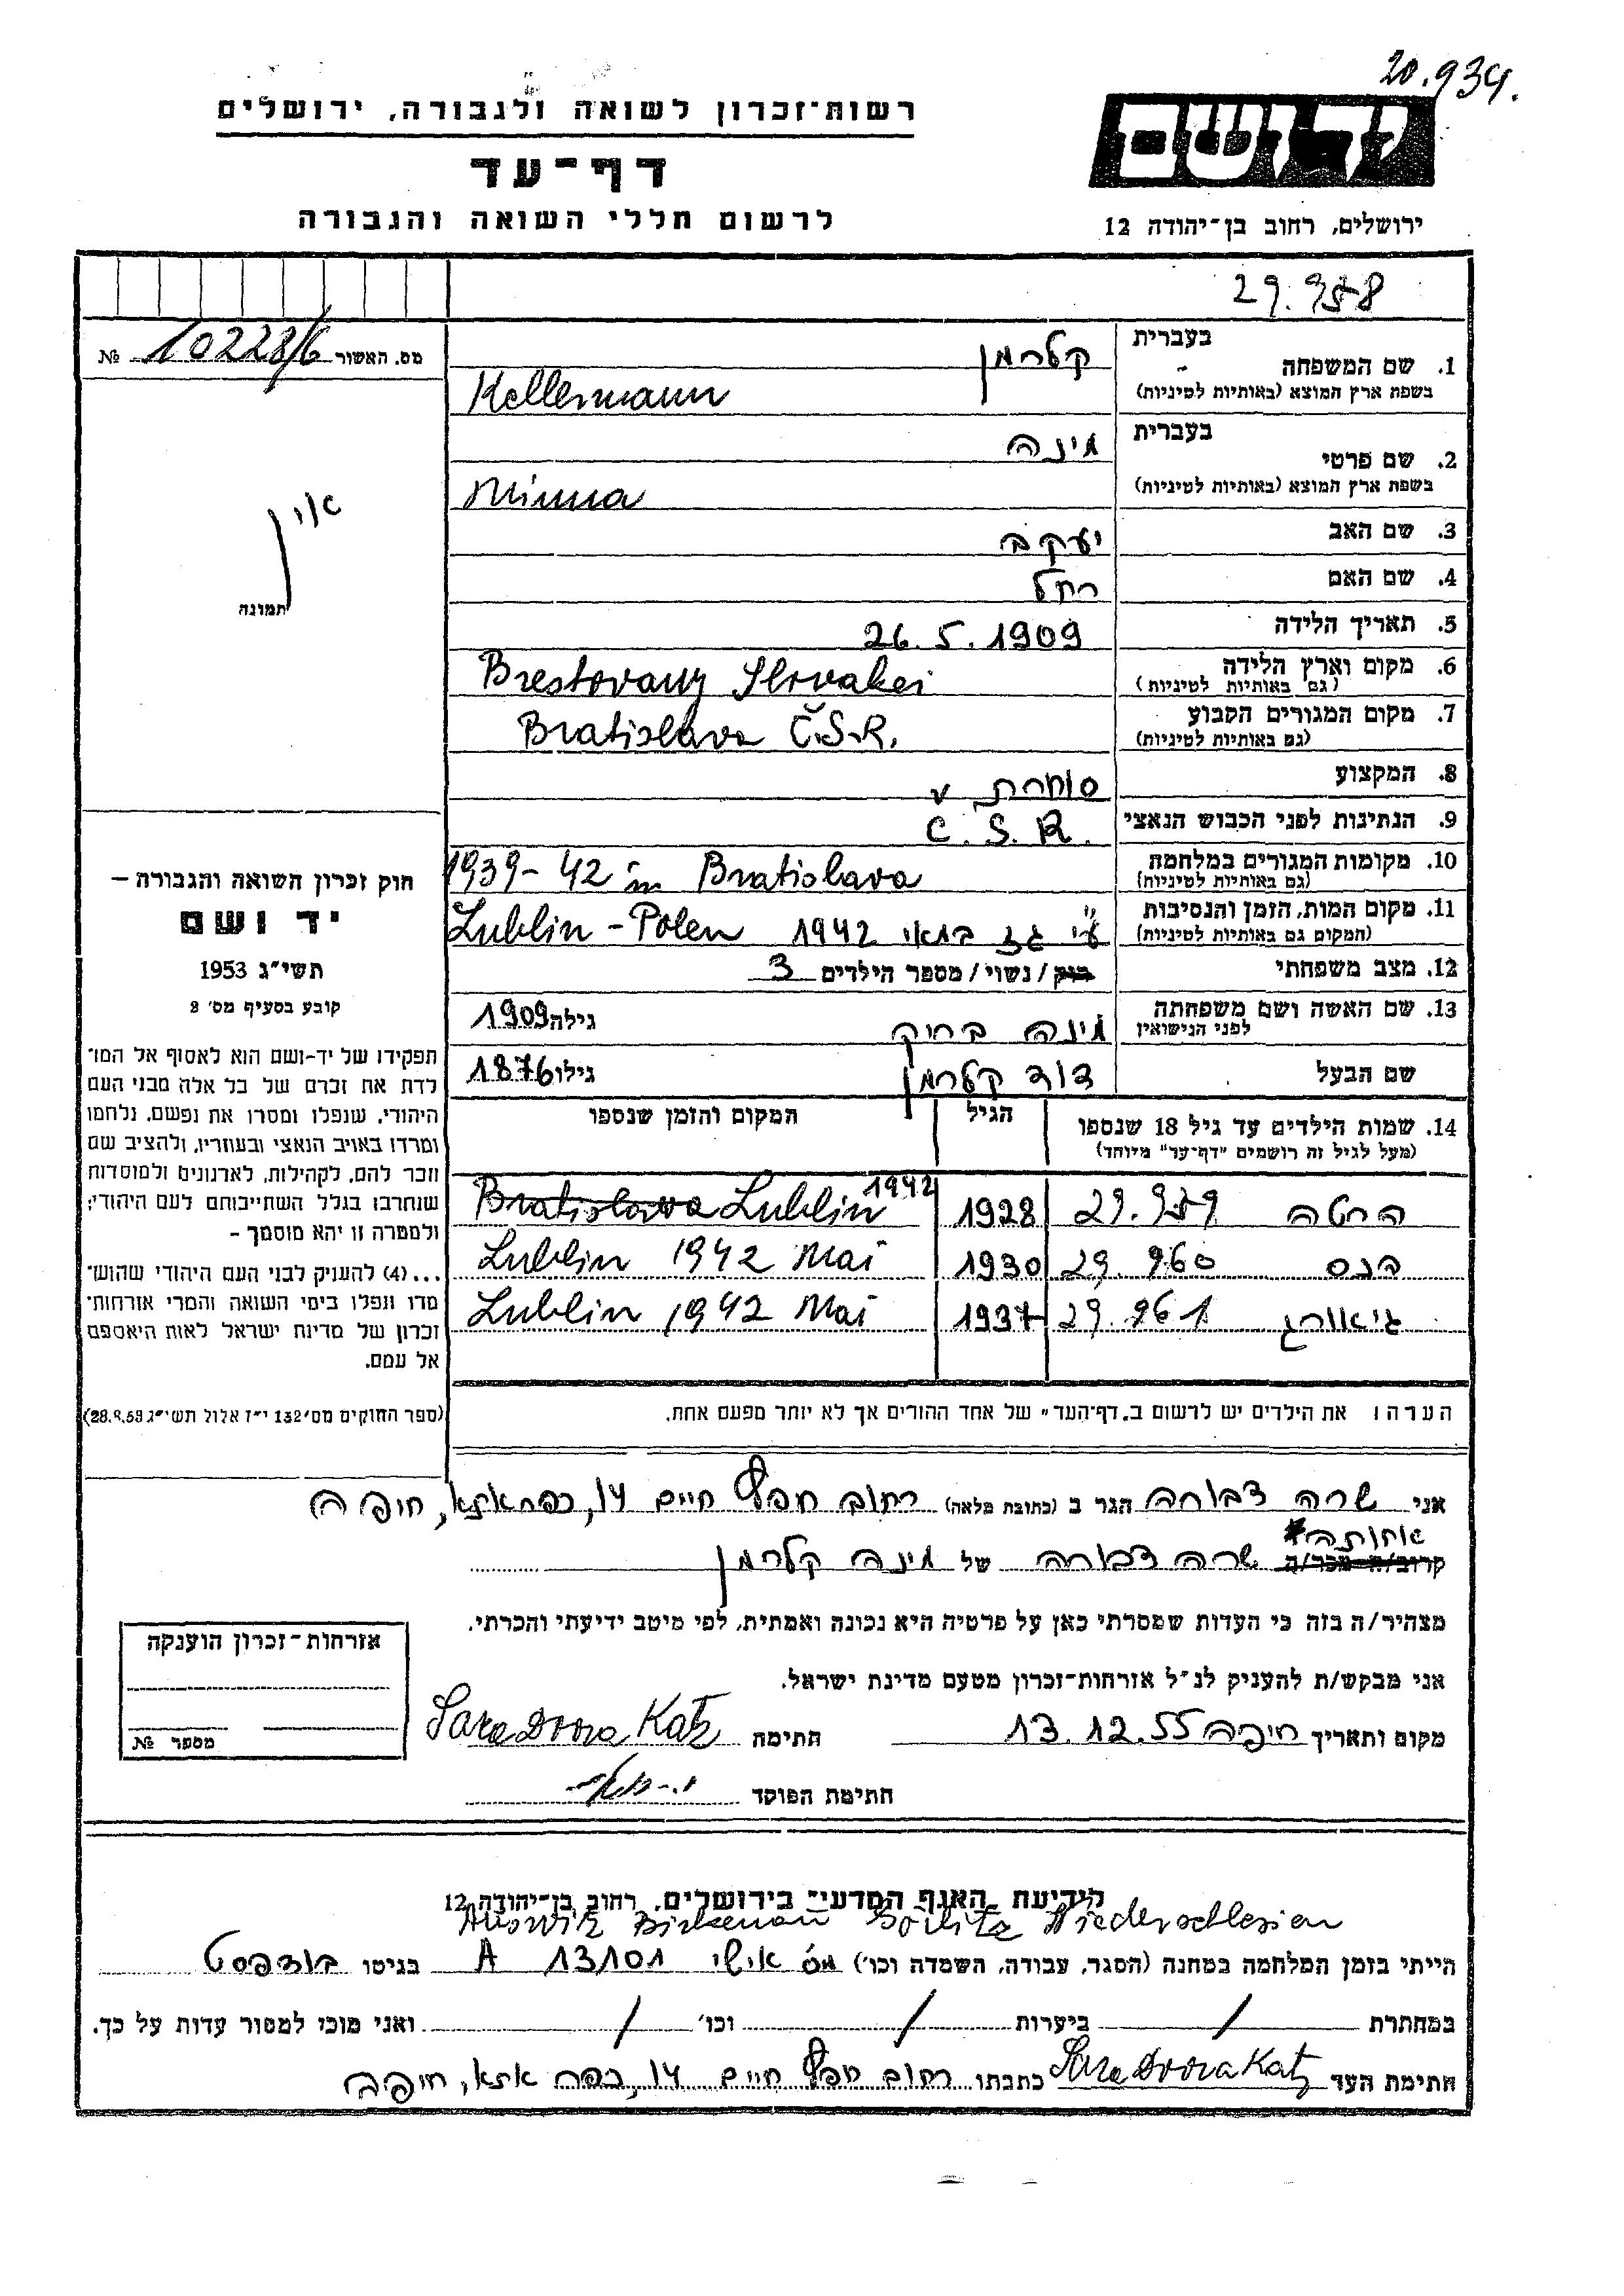 20.934.
רשות-זכרון לשואה ולגבורה, ירושלים
יד ושם
דף-עד
לרשום חללי השואה והגבורה
ירושלים, רחוב בן-יהודה 12
29.958
מס. האשור 10228/6 №
בעברית קלרמן
1. שם המשפחה
בשפת ארץ המוצא (באותיות לטיניות) Kellermann
בעברית מינה
2. שם פרטי
בשפת ארץ המוצא (באותיות לטיניות) Minna
3. שם האב יעקב
4. שם האם רחל
5. תאריך הלידה 26.5.1909
6. מקום וארץ הלידה Brestovany Slovakei
(גם באותיות לטיניות)
7. מקום המגורים הקבוע Bratislava Č.S.R.
(גם באותיות לטיניות)
8. המקצוע סוחרת v
9. הנתינות לפני הכבוש הנאצי C.S.R.
10. מקומות המגורים במלחמה 1939-42 in Bratislava
(גם באותיות לטיניות)
11. מקום המות, הזמן והנסיבות ע"י גז במאי 1942 Lublin-Polen
(המקום גם באותיות לטיניות)
12. מצב משפחתי רווק/נשוי/מספר הילדים 3
13. שם האשה ושם משפחתה מינה ברוק גילה 1909
לפני הנישואין
שם הבעל דוד קלרמן גילו 1876
14. שמות הילדים עד גיל 18 שנספו הגיל המקום והזמן שנספו
(מעל לגיל זה רושמים "דף-עד" מיוחד)
הרטה 29.959 1928 Bratislava Lublin 1942
הנס 29.960 1930 Lublin 1942 Mai
גיאורג 29.961 1937 Lublin 1942 Mai
הערה: את הילדים יש לרשום ב"דף-העד" של אחד ההורים אך לא יותר מפעם אחת.
אין
תמונה
חוק זכרון השואה והגבורה –
יד ושם
תשי"ג 1953
קובע בסעיף מס' 2
תפקידו של יד-ושם הוא לאסוף אל המו־
לדת את זכרם של כל אלה מבני העם
היהודי, שנפלו ומסרו את נפשם, נלחמו
ומרדו באויב הנאצי ובעוזריו, ולהציב שם
וזכר להם, לקהילות, לארגונים ולמוסדות
שנחרבו בגלל השתייכותם לעם היהודי;
ולמטרה זו יהא מוסמך –
...(4) להעניק לבני העם היהודי שהוש־
מדו ונפלו בימי השואה והמרי אזרחות־
זכרון של מדינת ישראל לאות היאספם
אל עמם.
(ספר החוקים מס' 132 י"ז אלול תשי"ג 28.8.53)
אני שרה דבורה הגר ב (כתובת מלאה) רחוב חפץ חיים 14, כפר אתא, חיפה
אחותה
קרוב/ה מכר/ה שרה דבורה של מינה קלרמן
מצהיר/ה בזה כי העדות שמסרתי כאן על פרטיה היא נכונה ואמתית, לפי מיטב ידיעתי והכרתי.
אני מבקש/ת להעניק לנ"ל אזרחות-זכרון מטעם מדינת ישראל.
מקום ותאריך חיפה 13.12.55 חתימה Sara Dvora Katz
חתימת הפוקד
אזרחות-זכרון הוענקה
מספר №
לידיעת האגף המדעי בירושלים, רחוב בן-יהודה 12
Auswitz Birkenau Görlitz Niederschlesien
הייתי בזמן המלחמה במחנה (הסגר, עבודה, השמדה וכו') מס אישי A 13101 בגיטו בודפסט
במחתרת / ביערות / וכו' / ואני מוכן למסור עדות על כך.
חתימת העד Sara Dvora Katz כתבתו רחוב חפץ חיים 14, כפר אתא, חיפה